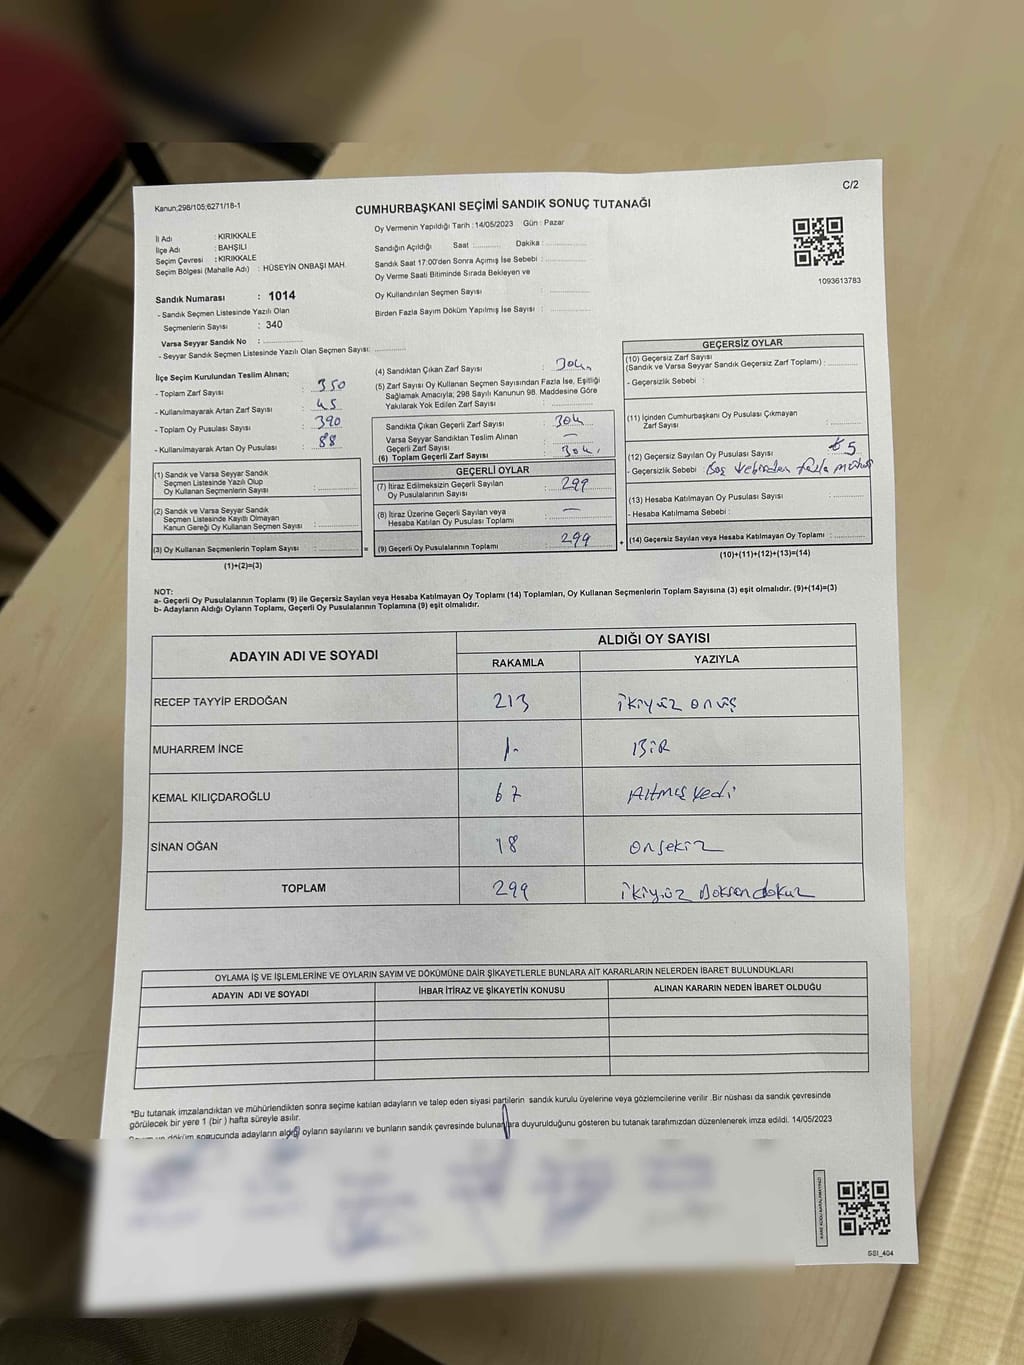 C/2
Kanun;298/105;6271/18-1
CUMHURBAŞKANI SEÇİMİ SANDIK SONUÇ TUTANAĞI
İl Adı : KIRIKKALE
İlçe Adı : BAHŞILI
Seçim Çevresi : KIRIKKALE
Seçim Bölgesi (Mahalle Adı) : HÜSEYİN ONBAŞI MAH.
Sandık Numarası : 1014
- Sandık Seçmen Listesinde Yazılı Olan
Seçmenlerin Sayısı : 340
Varsa Seyyar Sandık No :
- Seyyar Sandık Seçmen Listesinde Yazılı Olan Seçmen Sayısı:
Oy Vermenin Yapıldığı Tarih : 14/05/2023 Gün : Pazar
Sandığın Açıldığı Saat : Dakika :
Sandık Saat 17:00'den Sonra Açımış İse Sebebi :
Oy Verme Saati Bitiminde Sırada Bekleyen ve
Oy Kullandırılan Seçmen Sayısı :
Birden Fazla Sayım Döküm Yapılmış İse Sayısı :
1093613783
İlçe Seçim Kurulundan Teslim Alınan;
- Toplam Zarf Sayısı : 350
- Kullanılmayarak Artan Zarf Sayısı : 45
- Toplam Oy Pusulası Sayısı : 390
- Kullanılmayarak Artan Oy Pusulası : 88
(1) Sandık ve Varsa Seyyar Sandık
Seçmen Listesinde Yazılı Olup
Oy Kullanan Seçmenlerin Sayısı :
(2) Sandık ve Varsa Seyyar Sandık
Seçmen Listesinde Kayıtlı Olmayan
Kanun Gereği Oy Kullanan Seçmen Sayısı :
(3) Oy Kullanan Seçmenlerin Toplam Sayısı : =
(1)+(2)=(3)
(4) Sandıktan Çıkan Zarf Sayısı : 304
(5) Zarf Sayısı Oy Kullanan Seçmen Sayısından Fazla İse, Eşitliği
Sağlamak Amacıyla; 298 Sayılı Kanunun 98. Maddesine Göre
Yakılarak Yok Edilen Zarf Sayısı :
Sandıkta Çıkan Geçerli Zarf Sayısı : 304
Varsa Seyyar Sandıktan Teslim Alınan
Geçerli Zarf Sayısı : —
(6) Toplam Geçerli Zarf Sayısı : 304
GEÇERLİ OYLAR
(7) İtiraz Edilmeksizin Geçerli Sayılan
Oy Pusulalarının Sayısı : 299
(8) İtiraz Üzerine Geçerli Sayılan veya
Hesaba Katılan Oy Pusulası Toplamı : —
(9) Geçerli Oy Pusulalarının Toplamı : 299 +
GEÇERSİZ OYLAR
(10) Geçersiz Zarf Sayısı
(Sandık ve Varsa Seyyar Sandık Geçersiz Zarf Toplamı) :
- Geçersizlik Sebebi :
(11) İçinden Cumhurbaşkanı Oy Pusulası Çıkmayan
Zarf Sayısı :
(12) Geçersiz Sayılan Oy Pusulası Sayısı : 5
- Geçersizlik Sebebi : Boş ve birden fazla mühür
(13) Hesaba Katılmayan Oy Pusulası Sayısı :
- Hesaba Katılmama Sebebi :
(14) Geçersiz Sayılan veya Hesaba Katılmayan Oy Toplamı :
(10)+(11)+(12)+(13)=(14)
NOT:
a- Geçerli Oy Pusulalarının Toplamı (9) ile Geçersiz Sayılan veya Hesaba Katılmayan Oy Toplamı (14) Toplamları, Oy Kullanan Seçmenlerin Toplam Sayısına (3) eşit olmalıdır. (9)+(14)=(3)
b- Adayların Aldığı Oyların Toplamı, Geçerli Oy Pusulalarının Toplamına (9) eşit olmalıdır.
ADAYIN ADI VE SOYADI ALDIĞI OY SAYISI
RAKAMLA YAZIYLA
RECEP TAYYİP ERDOĞAN 213 ikiyüz onüç
MUHARREM İNCE 1- BİR
KEMAL KILIÇDAROĞLU 67 Altmış yedi
SİNAN OĞAN 18 onsekiz
TOPLAM 299 ikiyüz doksandokuz
OYLAMA İŞ VE İŞLEMLERİNE VE OYLARIN SAYIM VE DÖKÜMÜNE DAİR ŞİKAYETLERLE BUNLARA AİT KARARLARIN NELERDEN İBARET BULUNDUKLARI
ADAYIN ADI VE SOYADI İHBAR İTİRAZ VE ŞİKAYETİN KONUSU ALINAN KARARIN NEDEN İBARET OLDUĞU
*Bu tutanak imzalandıktan ve mühürlendikten sonra seçime katılan adayların ve talep eden siyasi partilerin sandık kurulu üyelerine veya gözlemcilerine verilir .Bir nüshası da sandık çevresinde
görülecek bir yere 1 (bir ) hafta süreyle asılır.
döküm sonucunda adayların aldığı oyların sayılarını ve bunların sandık çevresinde bulunanlara duyurulduğunu gösteren bu tutanak tarafımızdan düzenlenerek imza edildi. 14/05/2023
SSI_404